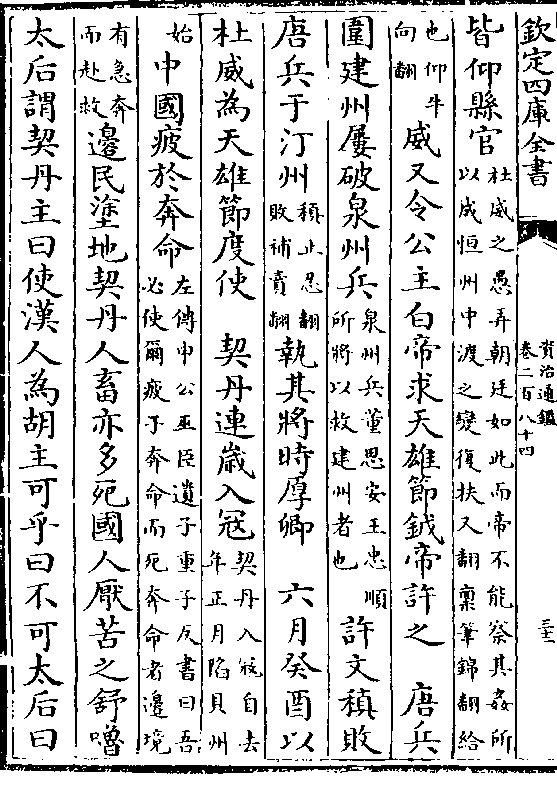 欽定四庫全書
資治通鑑
卷二百八十四
三十三
皆仰縣官杜威之愚弄朝廷如此而帝不能察其姦所
以成恒州中渡之變復扶又翻稟筆錦翻給
也仰牛
向翻威又令公主白帝求天雄節鉞帝許之　唐兵
圍建州屢破泉州兵泉州兵董思安王忠順
所將以救建州者也許文稹敗
唐兵于汀州稹止忍翻
敗補賣翻執其將時厚卿　六月癸酉以
杜威為天雄節度使　契丹連歲入寇契丹入寇自去
年正月陷貝州
始中國疲於奔命左傳申公巫臣遺子重子反書曰吾
必使爾疲于奔命而死奔命者邊境
有急奔
而赴救邊民塗地契丹人畜亦多死國人厭苦之舒嚕
太后謂契丹主曰使漢人為胡主可乎曰不可太后曰